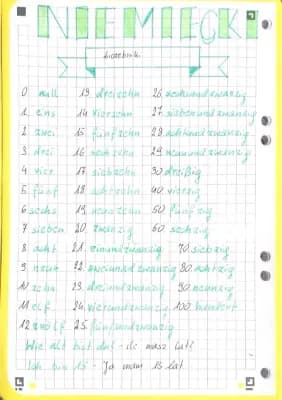 NIEMIECKI
Liczebniki
0 null 13 dreizehn 26 sechsundzwanzig
1 eins 14 vierzehn 27 siebenundzwanzig
2 zwei 15 fünfzehn 28 achtundzwanzig
3 drei 16 sechzehn 29 neunundzwanzig
4 vier 17 siebzehn 30 dreißig
5 fünf 18 achtzehn 40 vierzig
6 sechs 19 neunzehn 50 fünfzig
7 sieben 20 zwanzig 60 sechzig
8 acht 21. einundzwanzig 70 siebzig
9 neun 22. zweiundzwanzig 80 achtzig
10 zehn 23 dreiundzwanzig 90 neunzig
11 elf 24 vierundzwanzig 100 hundert
12 zwölf 25 fünfundzwanzig
Wie alt bist du? - ile masz lat?
Ich bin 15 - Ja mam 15 lat.